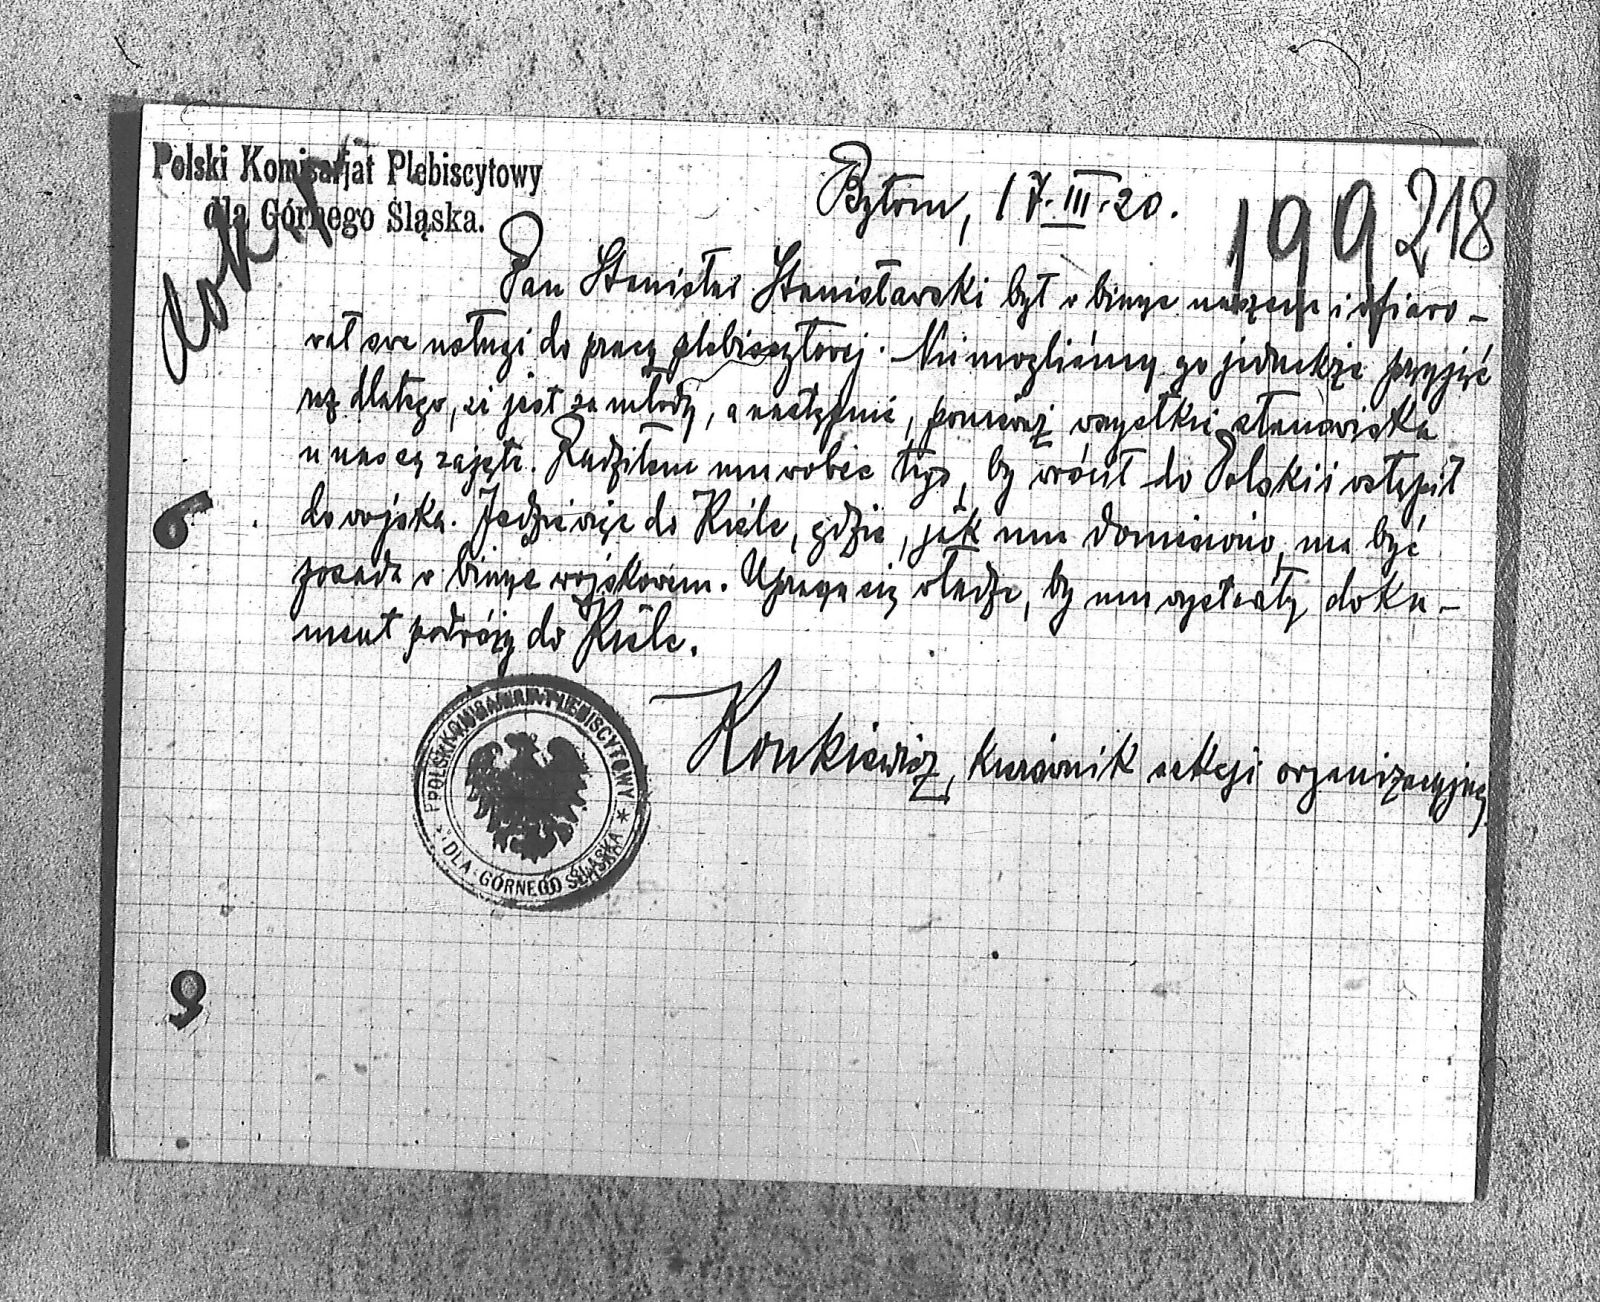 Polski Komisarjat Plebiscytowy
dla Górnego Śląska.
Bytom, 17.III.20.
199 218
Pan Stanisław Stanisławski był w biurze naszem i ofiaro-
wał swe usługi do pracy plebiscytowej. Nie mogliśmy go jednakże przyjąć
raz dlatego, że jest za młody, a następnie, ponieważ wszystkie stanowiska
u nas są zajęte. Radziłem mu wobec tego, by wrócił do Polski i wstąpił
do wojska. Jedzie więc do Kielc, gdzie, jak mu doniesiono, ma być
posada w biurze wojskowem. Uprasza się władze, by mu wystawiły doku-
ment podróży do Kielc.
Ronkiewicz, kierownik sekcji organizacyjnej
POLSKI KOMISARJAT PLEBISCYTOWY
* DLA GÓRNEGO ŚLĄSKA *
6
9